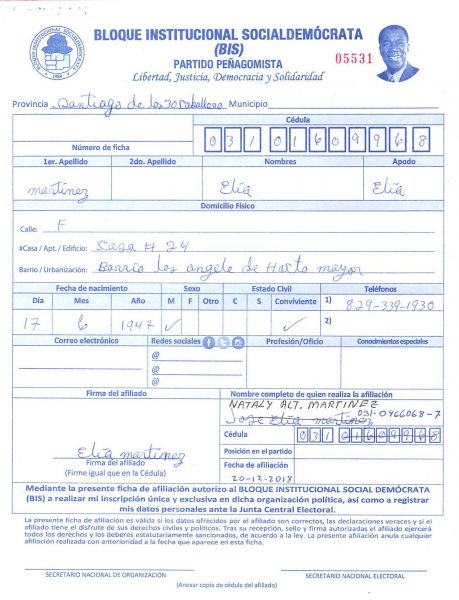 BLOQUE INSTITUCIONAL SOCIALDEMÓCRATA
(BIS)
PARTIDO PEÑAGOMISTA
Libertad, Justicia, Democracia y Solidaridad
05531
Provincia Santiago de los 30 Caballeros Municipio
Cédula
Número de ficha 03101609968
1er. Apellido 2do. Apellido Nombres Apodo
martinez Elia Elia
Domicilio Físico
Calle: F
#Casa / Apt. / Edificio: Casa # 24
Barrio / Urbanización: Barrio los angele de Hato mayor
Fecha de nacimiento Sexo Estado Civil Teléfonos
Día Mes Año M F Otro C S Conviviente 1) 829-339-1930
17 6 1947 ✓ ✓ 2)
Correo electrónico Redes sociales Profesión/Oficio Conocimientos especiales
@
@
@
Firma del afiliado Nombre completo de quien realiza la afiliación
NATALY ALT. MARTINEZ
Jose Elia martinez 031-0466068-7
Cédula 031
Posición en el partido
Elia martinez
Firma del afiliado
(Firme igual que en la Cédula)
Fecha de afiliación
20-12-2018
Mediante la presente ficha de afiliación autorizo al BLOQUE INSTITUCIONAL SOCIAL DEMÓCRATA
(BIS) a realizar mi inscripción única y exclusiva en dicha organización política, así como a registrar
mis datos personales ante la Junta Central Electoral.
La presente ficha de afiliación es válida si los datos ofrecidos por el afiliado son correctos, las declaraciones veraces y si el
afiliado tiene el disfrute de sus derechos civiles y políticos. Tras su recepción, sello y firma autorizadas el afiliado ejercerá
todos los derechos y los deberes estatutariamente sancionados, de acuerdo a la ley. La presente afiliación anula cualquier
afiliación realizada con anterioridad a la fecha que aparece en esta ficha.
SECRETARIO NACIONAL DE ORGANIZACIÓN SECRETARIO NACIONAL ELECTORAL
(Anexar copia de cédula del afiliado)